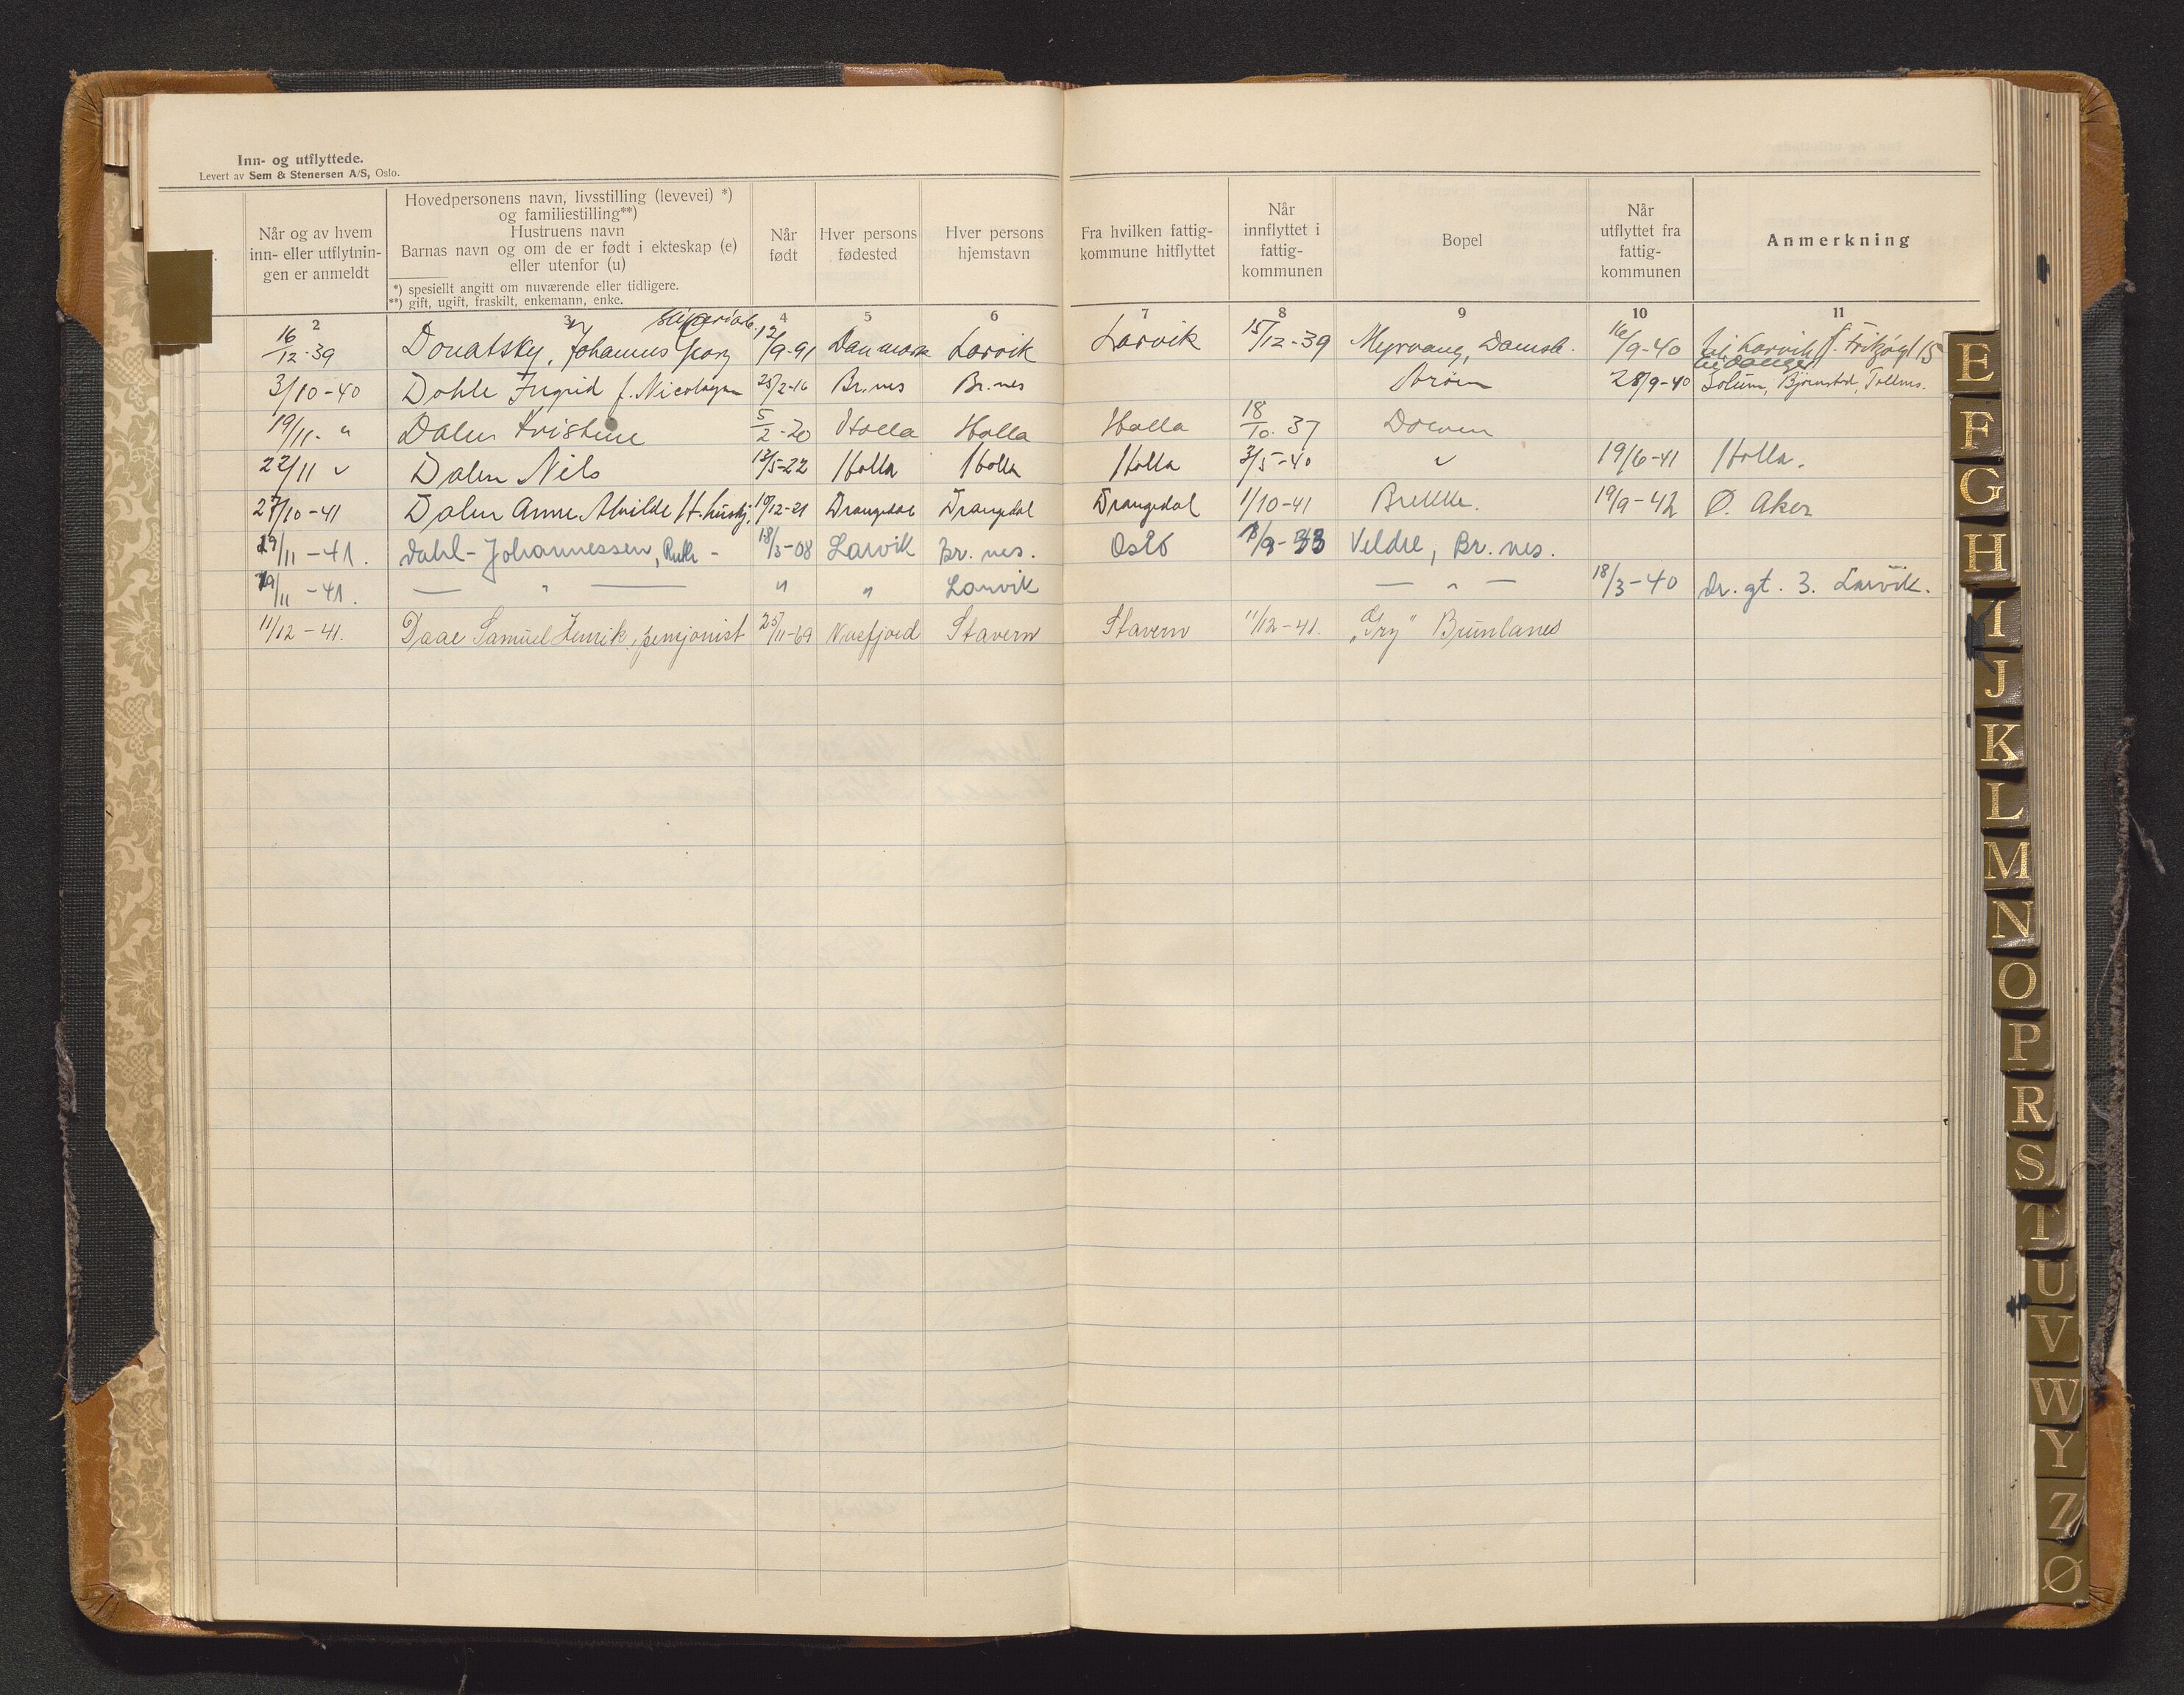 Inn- og utflyttede.
Levert av Sem & Stenersen A/S, Oslo.
Når og av hvem
inn- eller utflytnin-
gen er anmeldt
Hovedpersonens navn, livsstilling (levevei) *)
og familiestilling**)
Hustruens navn
Barnas navn og om de er født i ekteskap (e)
eller utenfor (u)
*) spesiellt angitt om nuværende eller tidligere.
**) gift, ugift, fraskilt, enkemann, enke.
Når
født
Hver persons
fødested
Hver persons
hjemstavn
Fra hvilken fattig-
kommune hitflyttet
Når
innflyttet i
fattig-
kommunen
Bopel
Når
utflyttet fra
fattig-
kommunen
Anmerkning
2 3 4 5 6 7 8 9 10 11
16/12-39 Donatsky, Johannes 12/9-91 Danmark Larvik Larvik 15/12-39 Myrvang, 16/9-40 Larvik 15
3/10-40 Dohle Ingrid f. Nicolaysen 25/2-16 Br.nes Br.nes 28/9-40 Solum,
19/11- " Dalen Kristine 5/2-20 Holla Holla Holla 18/10-37 Dolven
22/11 " Dalen Nils 13/5-22 Holla Holla Holla 3/5-40 " 19/6-41 Holla.
27/10-41 Dalen Anne Alvilde H. 10/12-21 Drangedal Drangedal Drangedal 1/10-41 Brekke. 19/9-42 Ø. Aker
29/11-41. Dahl-Johannessen, Ruth - 18/3-08 Larvik Br. nes. Oslo Veldre, Br. nes.
29/11-41. — " — " " Larvik — " — 18/3-40 Dr. gt. 3. Larvik.
11/12-41. Daae Samuel Henrik, pensjonist 25/11-69 Stavern Stavern 11/12-41. "Gry" Brunlanes
E
F
G
H
I
J
K
L
M
N
O
P
R
S
T
U
V
W
Y
Z
Ø